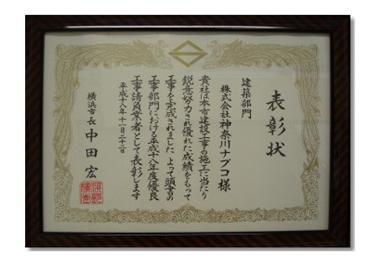 表彰状
建築部門
株式会社神奈川ナブコ様
貴社は本市建設工事の施工に当たり
鋭意努力され優れた成績をもって
工事を完成されました よって頭書の
工事部門における平成十八年度優良
工事請負業者として表彰します
平成十八年十一月二十一日
横浜市長 中田 宏